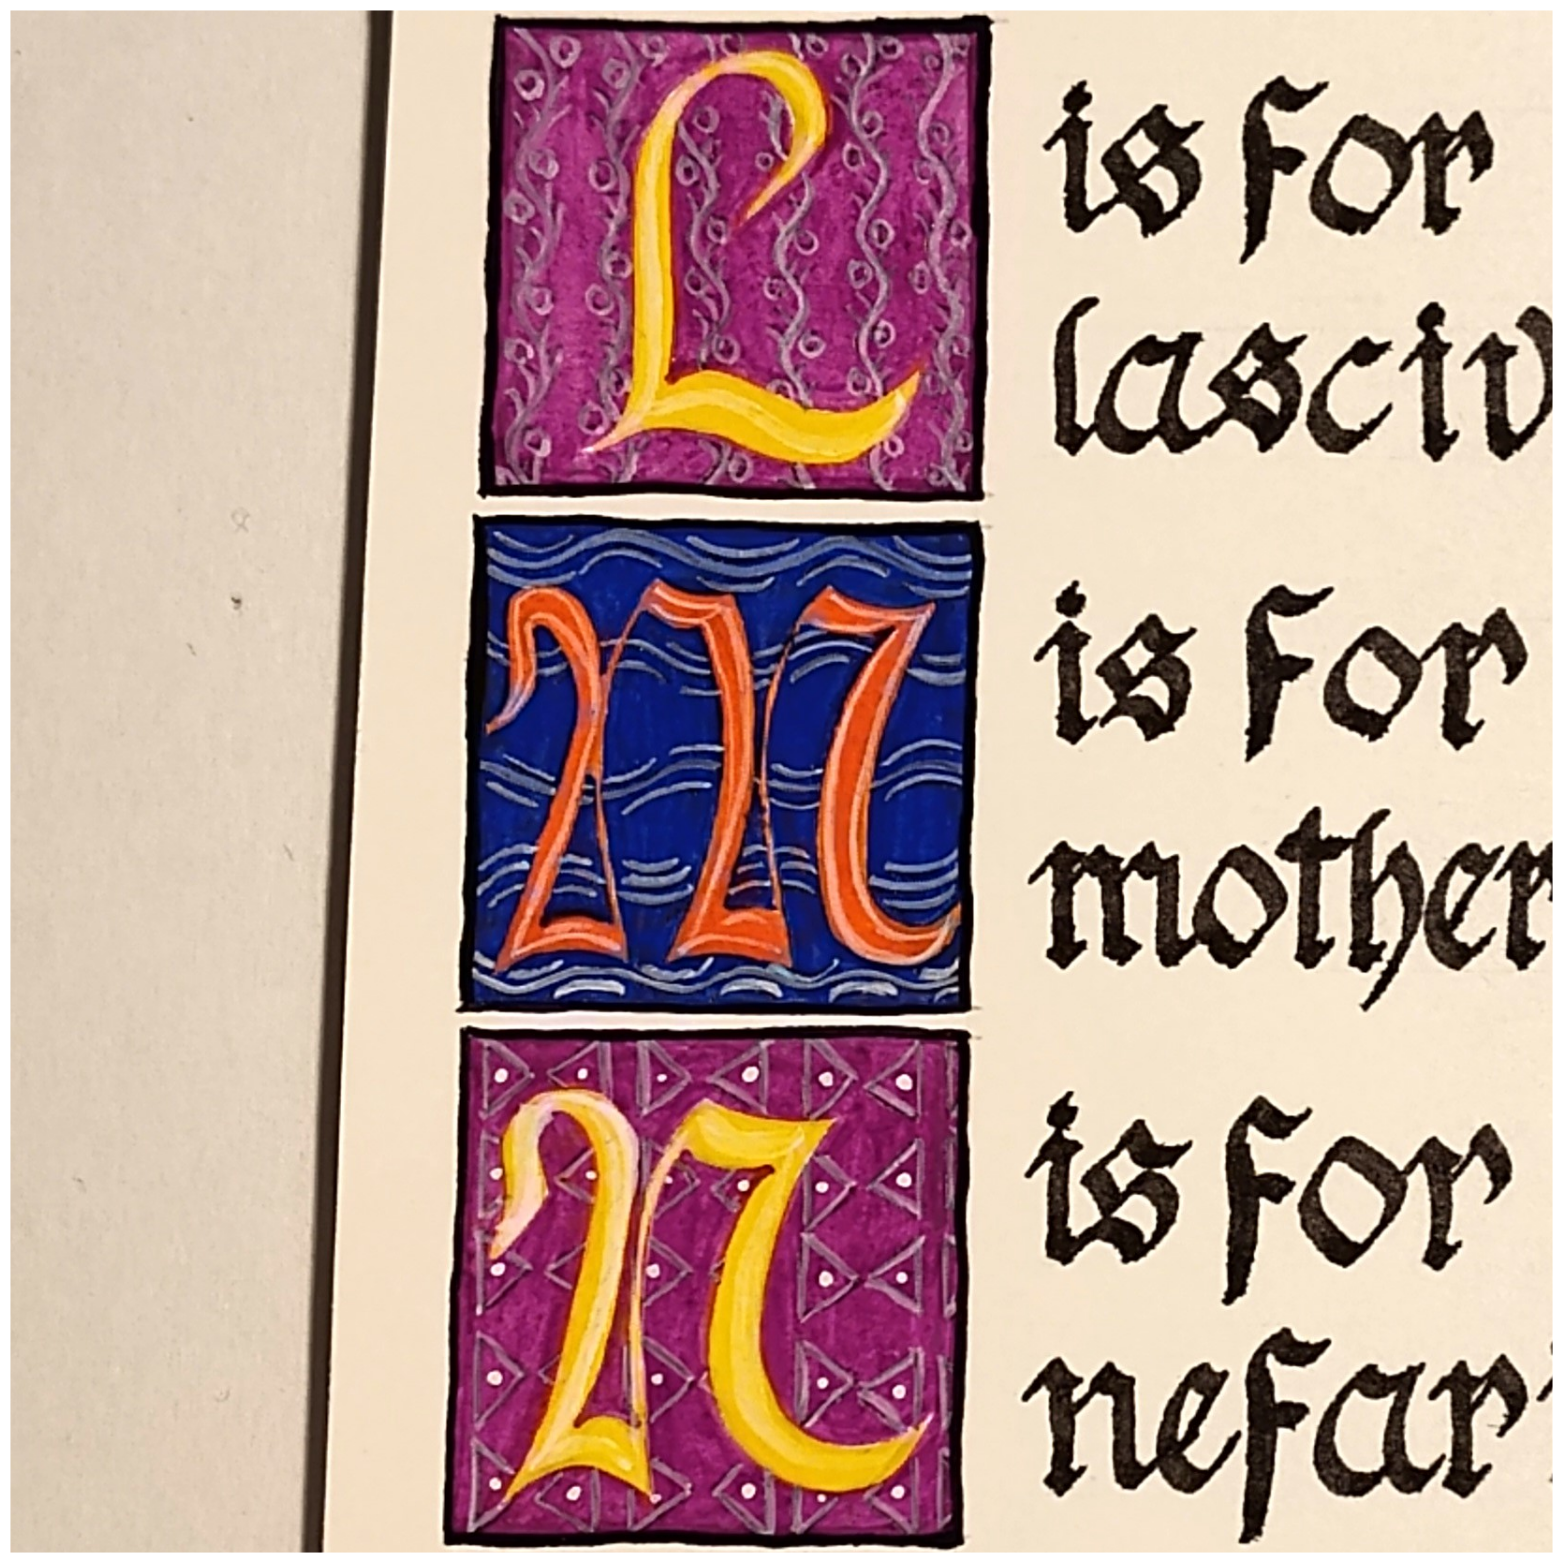 L is for
lasciv
M is for
mother
N is for
nefar